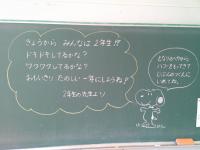 きょうから みんなは 2年生!!
ドキドキしてるかな?
ワクワクしてるかな?
おもいきり たのしい 一年にしようね!
2年生の先生より
となりのへやから
いれてね。